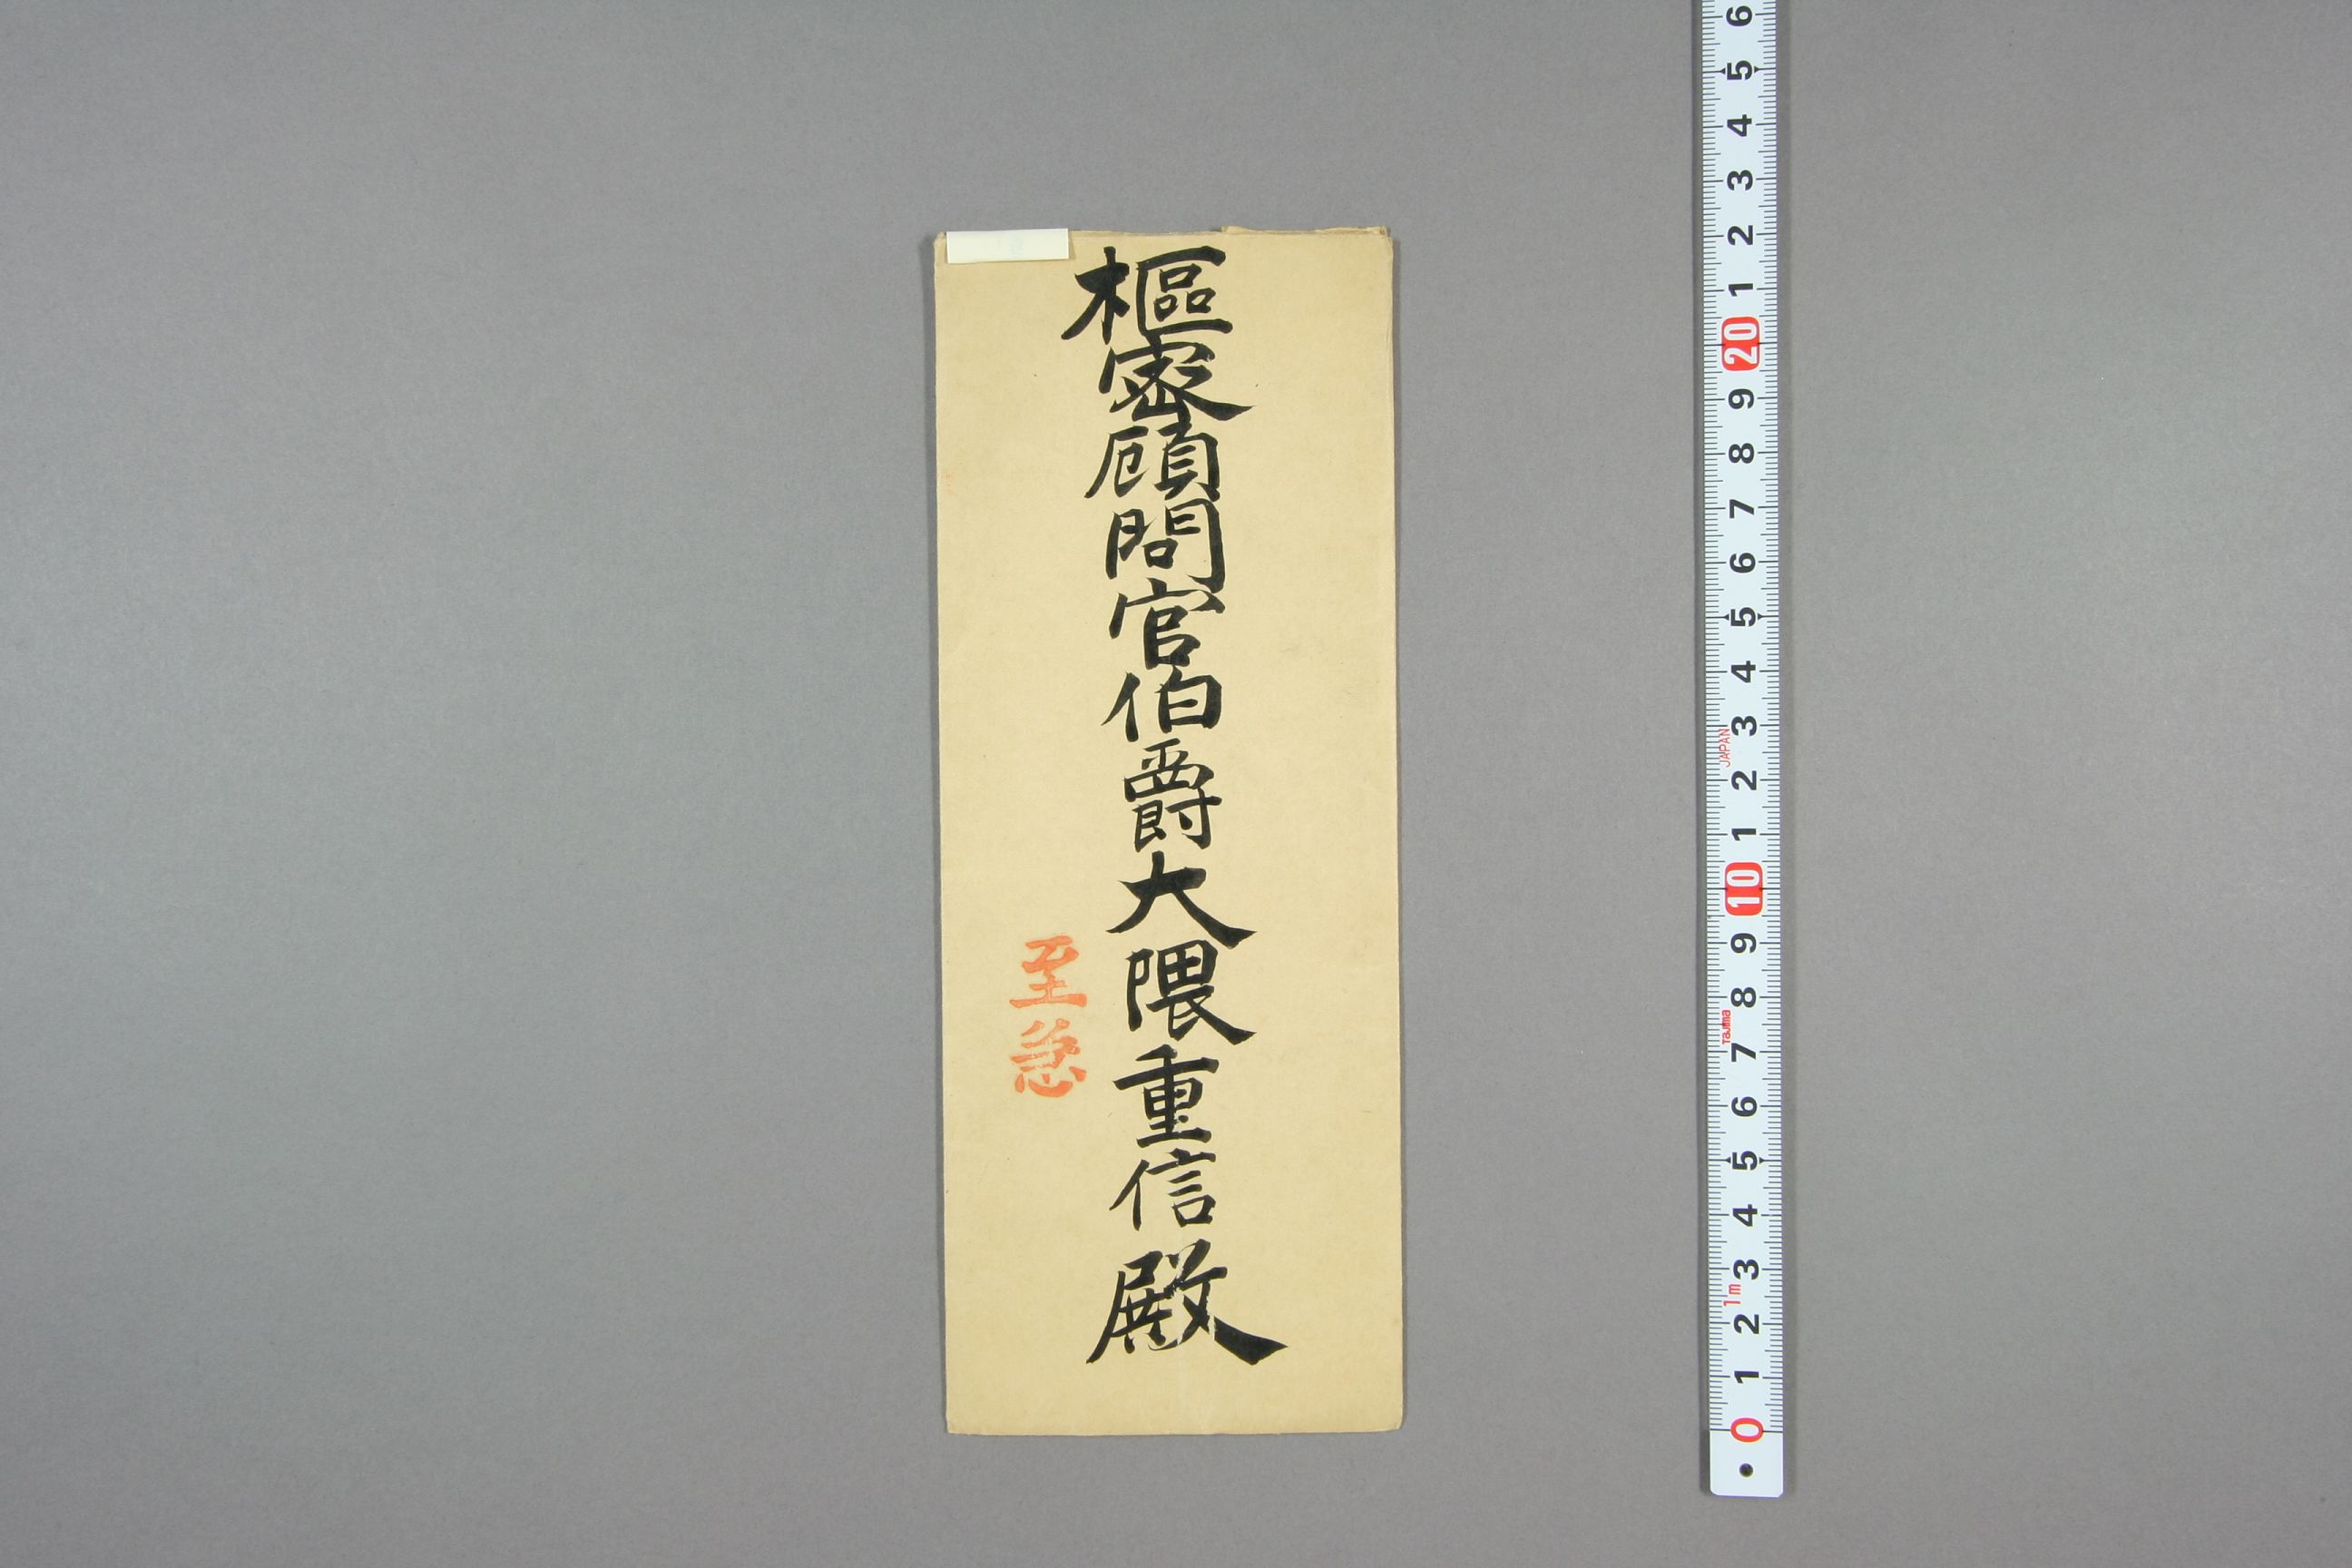 樞密顧問官伯爵大隈重信殿
至急
6
5
4
3
2
1
20
9
8
7
6
5
4
3
JAPAN
2
1
10
9
8
Tajima
7
6
5
4
3
1m
2
1
0